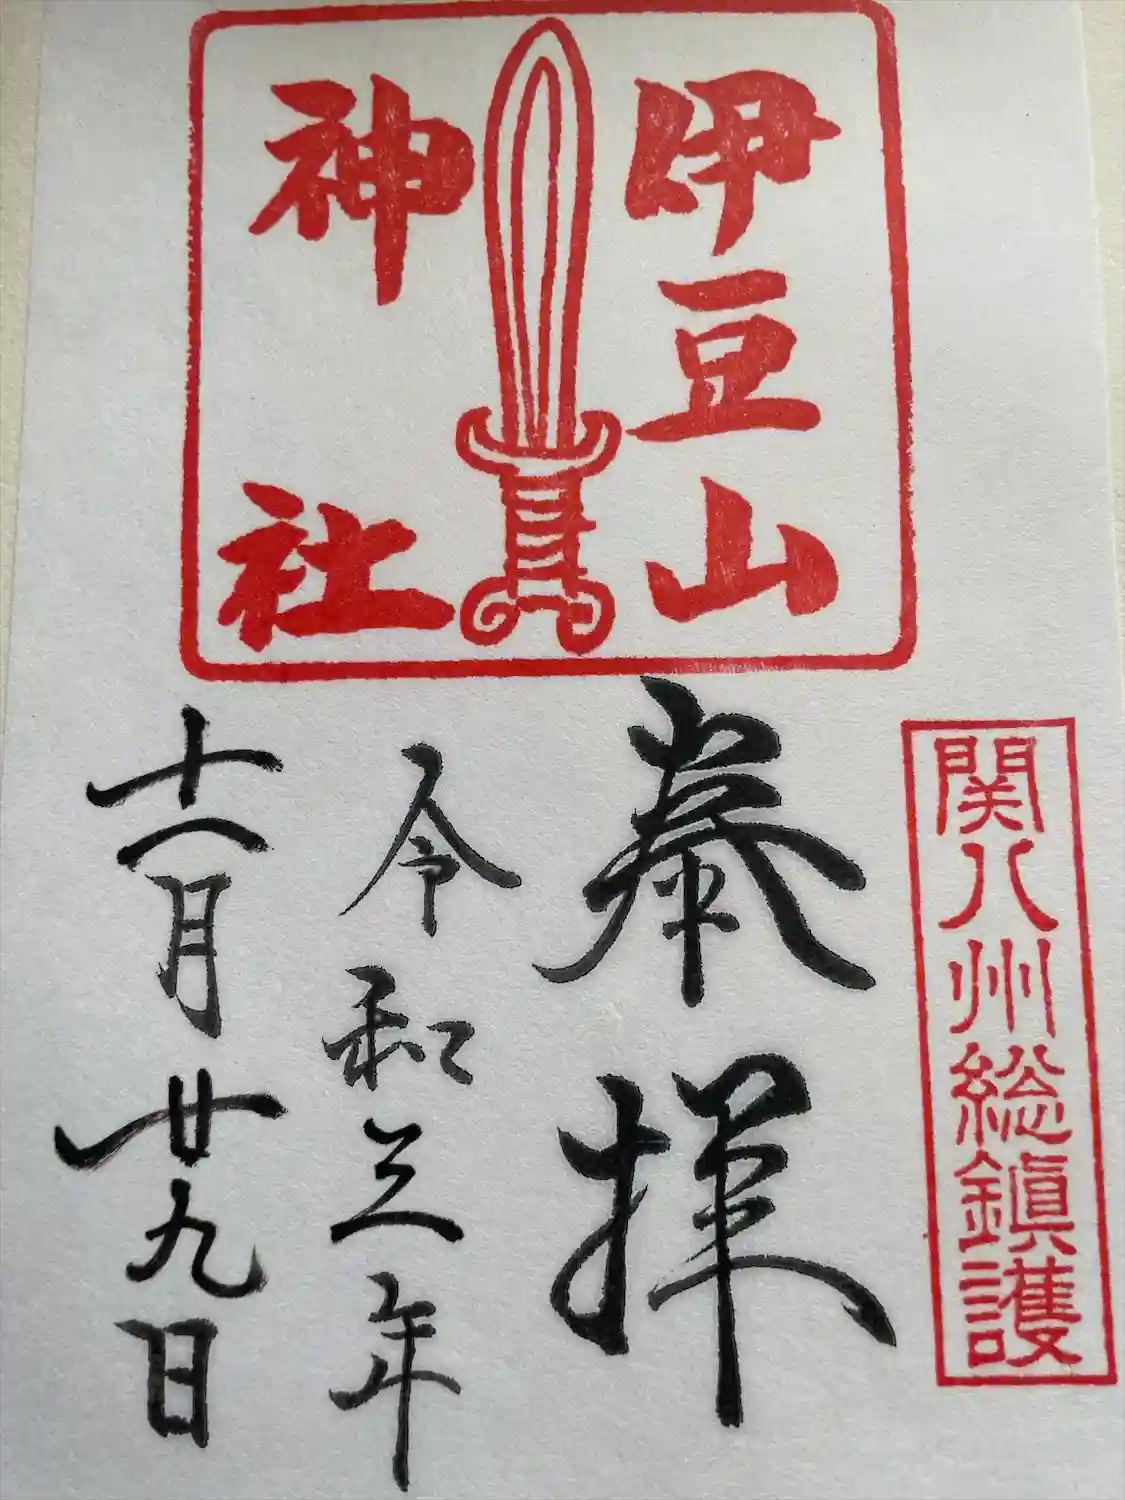 伊豆山
神社
関八州総鎭護
奉拝
令和三年
十一月廿九日